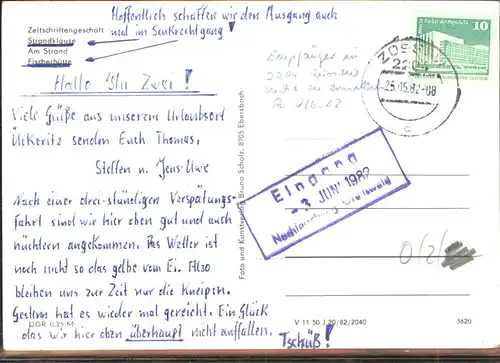 Hoffentlich schaffen wir den Ausgang auch
mal im Senkrechtgang!
Zeitschriftengeschäft
Strandklause
Am Strand
Fischerhütte
Hallo Ihr Zwei!
Viele Grüße aus unserem Urlaubsort
Ückeritz senden Euch Thomas,
Steffen u. Jens-Uwe
Nach einer drei-stündigen Verspätungs-
fahrt sind wir hier oben gut und auch
nüchtern angekommen. Das Wetter ist
noch nicht so das gelbe vom Ei. Also
bleiben uns zur Zeit nur die Kneipen.
Gestern hat es wieder mal gereicht. Ein Glück
das wir hier oben überhaupt nicht auffallen.
Tschüß!
DDR 0,25 M
Foto und Kunstverlag Bruno Scholz, 8705 Ebersbach
Empfänger in
nicht zu ermitteln
10
25.05.82-08
c
Eingang
-3. JUNI 1982
V 11 50 J 20/82/2040
3620